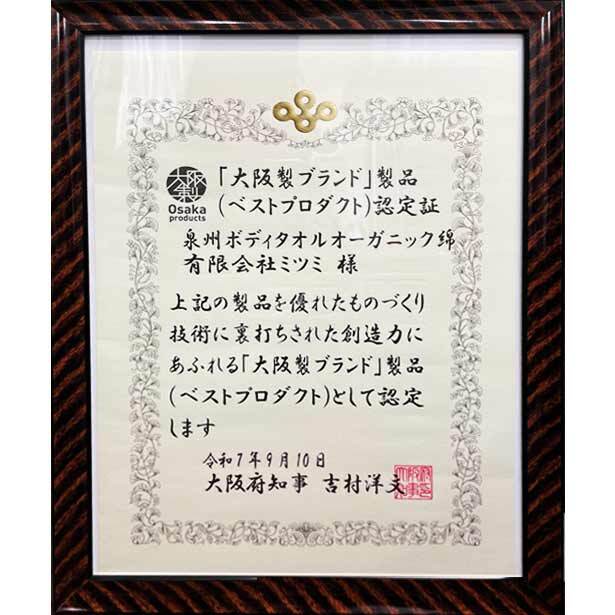 大阪製
Osaka
products
「大阪製ブランド」製品
(ベストプロダクト)認定証
泉州ボディタオルオーガニック綿
有限会社ミツミ 様
上記の製品を優れたものづくり
技術に裏打ちされた創造力に
あふれる「大阪製ブランド」製品
(ベストプロダクト)として認定
します
令和7年9月10日
大阪府知事 吉村洋文